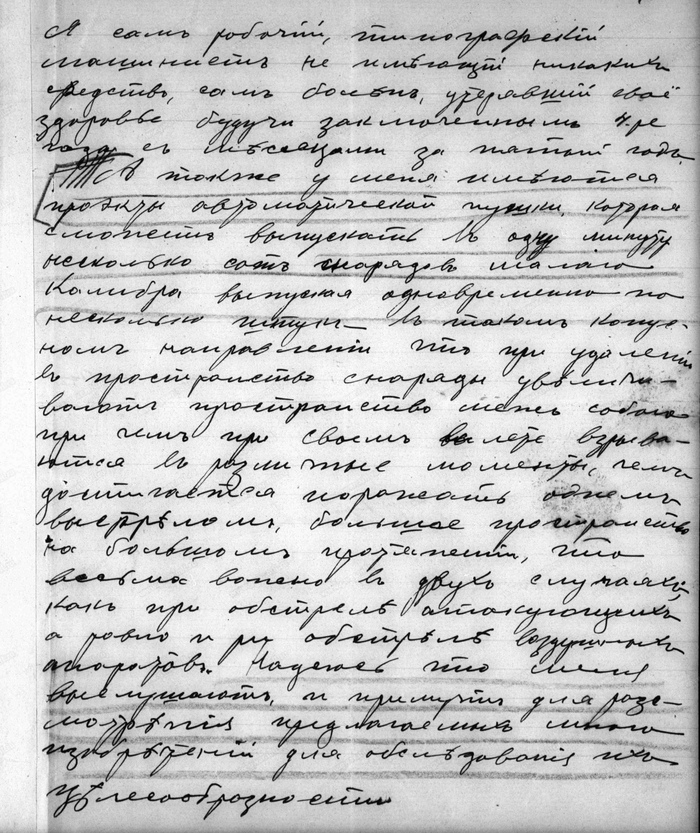 Я самъ робочій, типографскій
машинистъ не имѣющій никакихъ
средствъ, самъ боленъ, утерявшій своё
здоровье будучи заключеннымъ 4-ре
года съ мѣсецами за пятый годъ.
А также у меня имѣются
проэкты автоматической пушки, которая
сможетъ выпускать въ одну минуту
несколько сотъ снарядовъ малаго
калибра выпуская одновременно по
несколько штукъ въ такомъ конус-
номъ направленіи что при удаленіи
въ пространство снаряды увѣличи-
ваютъ пространство межъ собою
при чемъ при своемъ полете взрыва-
ются въ различные моменты, чемъ
достигается поражать однемъ
выстрѣломъ, большое пространство
на большомъ протяженіи, что
весьма важно въ двухъ случаяхъ,
какъ при обстрелѣ атакующихъ
а ровно и при обстрѣлѣ воздушныхъ
апаратовъ. Надеюсь что меня
выслушаютъ, и примутъ для разс-
мотрѣнія предлагаемыхъ мною
изобрѣтеній для обслѣдованія ихъ
цѣлесообразности